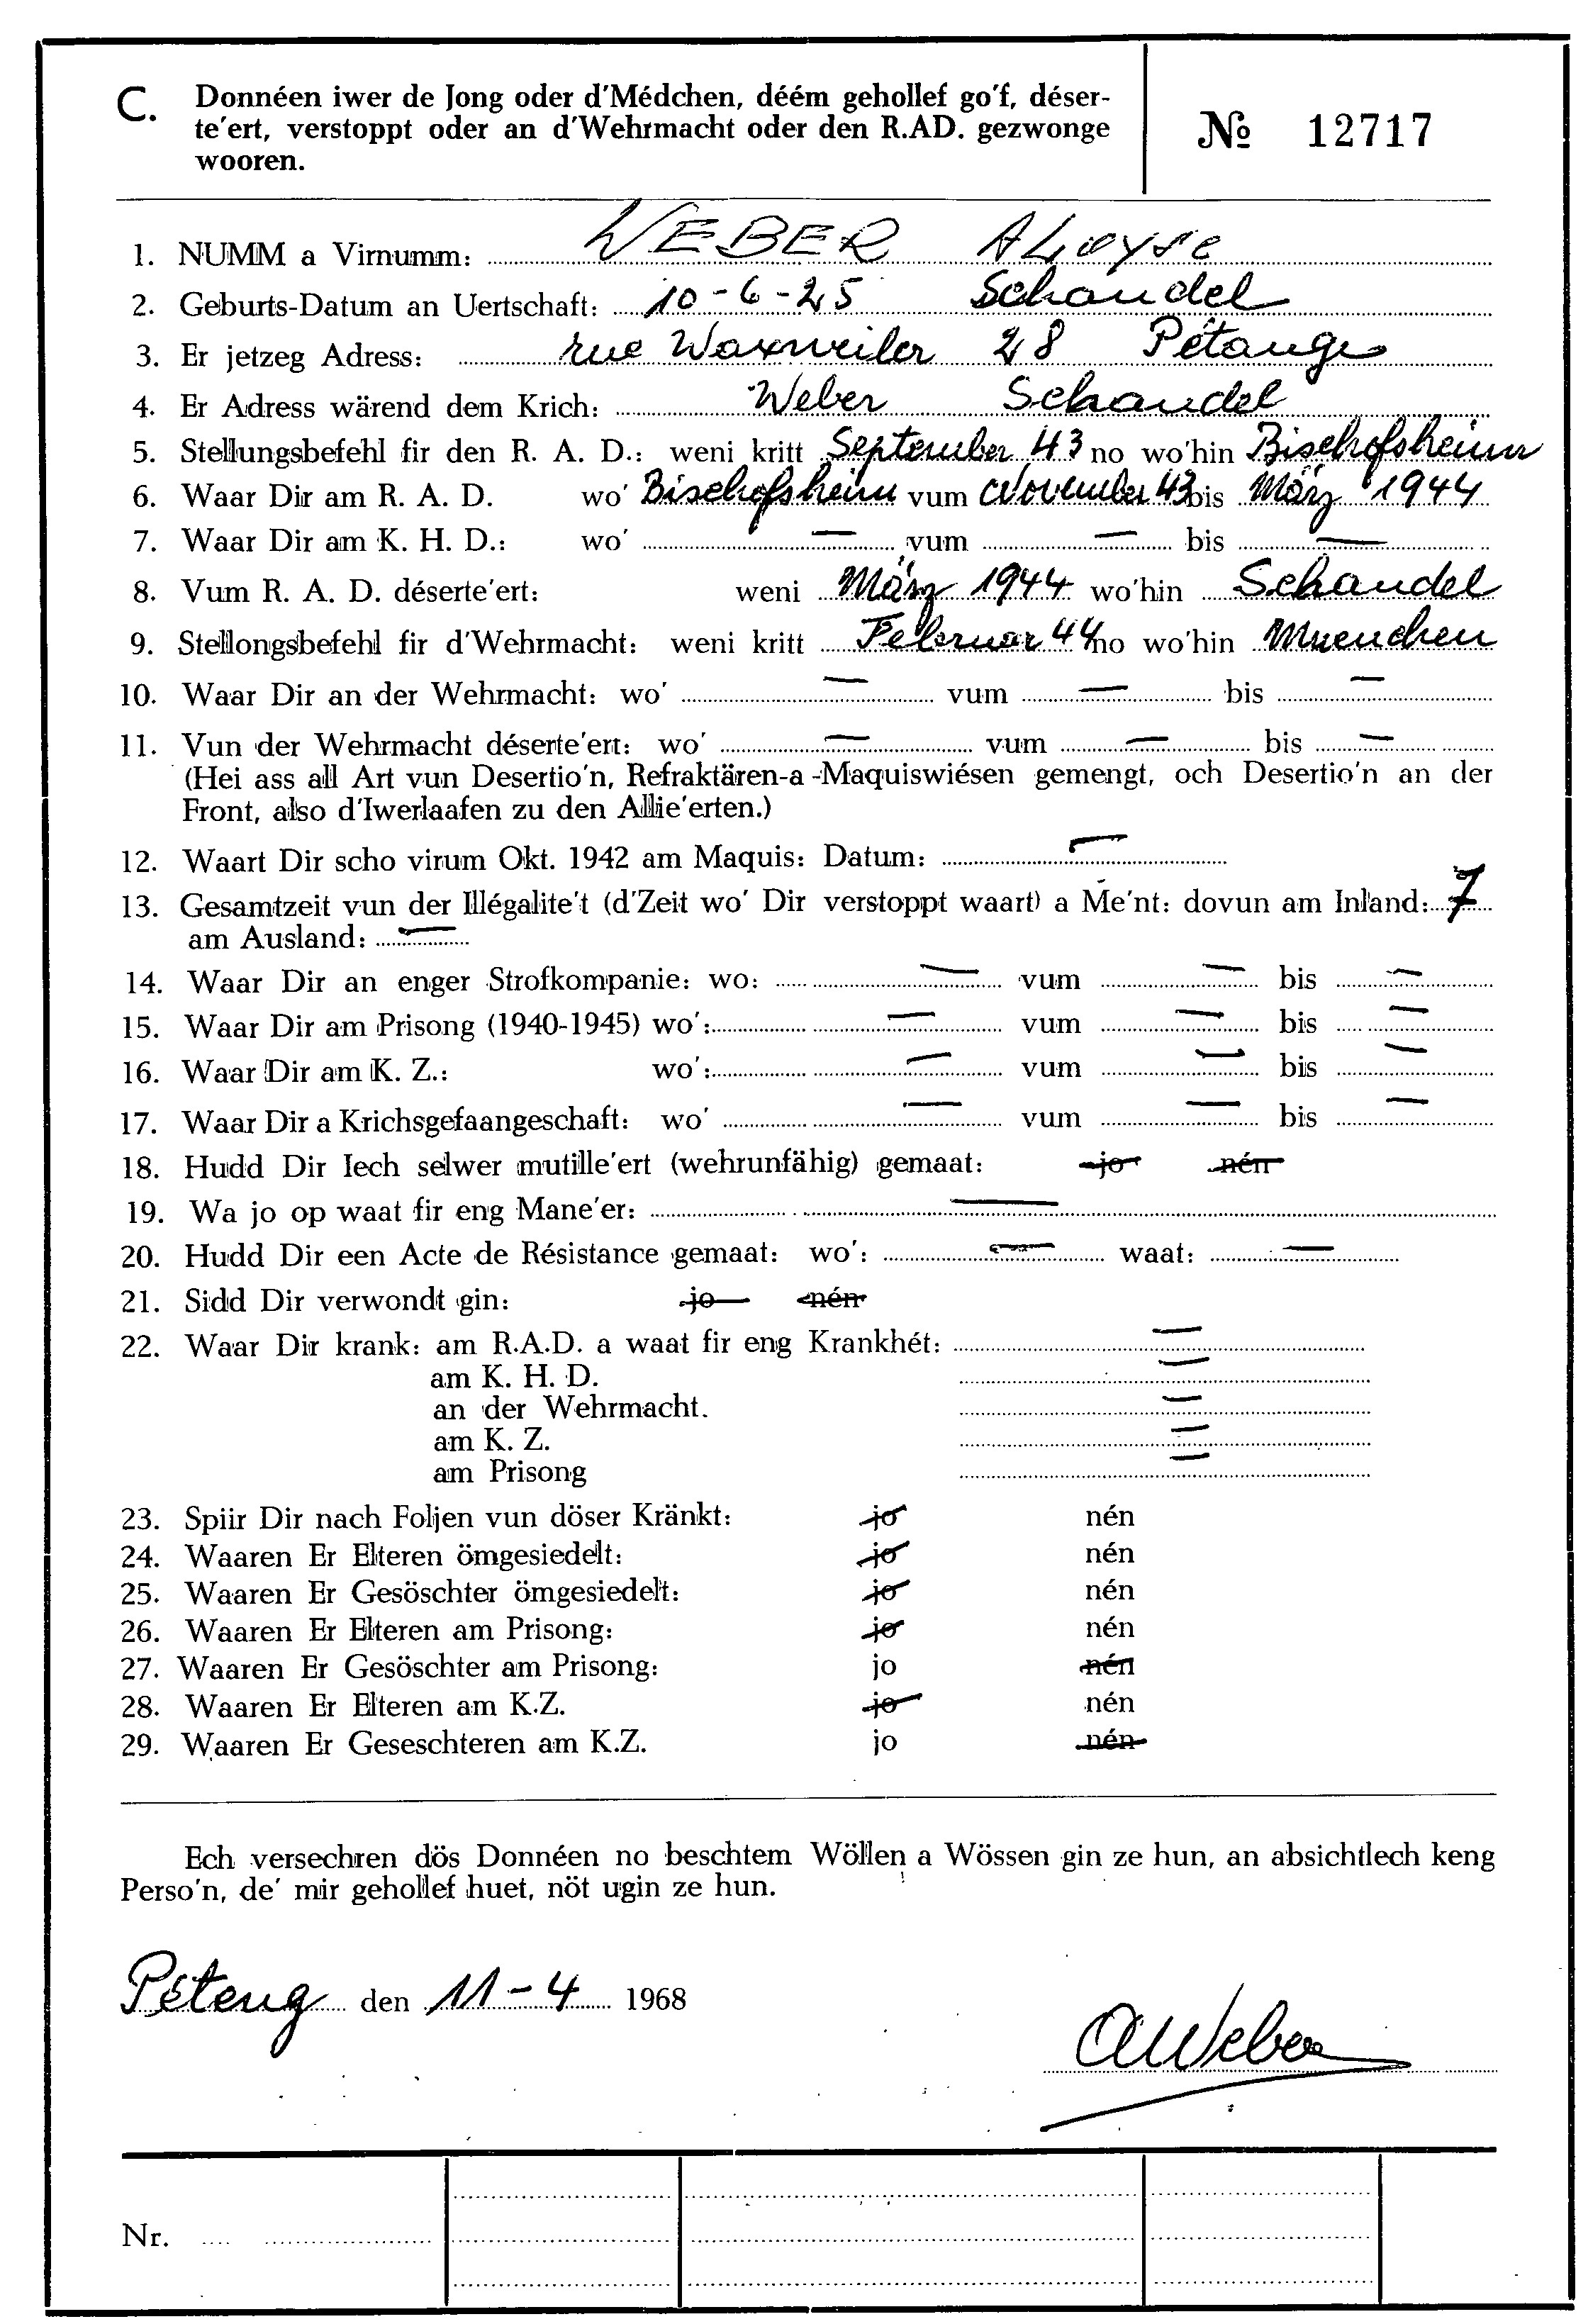 C. Donnéen iwer de Jong oder d'Médchen, déém gehollef go'f, déser-
te'ert, verstoppt oder an d'Wehrmacht oder den R.AD. gezwonge
wooren.
№ 12717
1. NUMM a Virnumm: WEBER Aloyse
2. Geburts-Datum an Uertschaft: 10-6-25 Schandel
3. Er jetzeg Adress: rue Waxweiler 28 Pétange
4. Er Adress wärend dem Krich: Weber Schandel
5. Stellungsbefehl fir den R. A. D.: weni kritt September 43 no wo'hin Bischofsheim
6. Waar Dir am R. A. D. wo' Bischofsheim vum November 43 bis März 1944
7. Waar Dir am K. H. D.: wo' — vum — bis —
8. Vum R. A. D. déserte'ert: weni März 1944 wo'hin Schandel
9. Stellongsbefehl fir d'Wehrmacht: weni kritt Februar 44 no wo'hin Muenchen
10. Waar Dir an der Wehrmacht: wo' — vum — bis —
11. Vun der Wehrmacht déserte'ert: wo' — vum — bis —
(Hei ass all Art vun Desertio'n, Refraktären-a-Maquiswiésen gemengt, och Desertio'n an der
Front, also d'Iwerlaafen zu den Allie'erten.)
12. Waart Dir scho virum Okt. 1942 am Maquis: Datum: —
13. Gesamtzeit vun der Illégalite't (d'Zeit wo' Dir verstoppt waart) a Me'nt: dovun am Inland: 7
am Ausland: —
14. Waar Dir an enger Strofkompanie: wo: — vum — bis —
15. Waar Dir am Prisong (1940-1945) wo': — vum — bis —
16. Waar Dir am K. Z.: wo': — vum — bis —
17. Waar Dir a Krichsgefaangeschaft: wo' — vum — bis —
18. Hudd Dir Iech selwer mutille'ert (wehrunfähig) gemaat: jo nén
19. Wa jo op waat fir eng Mane'er: —
20. Hudd Dir een Acte de Résistance gemaat: wo': — waat: —
21. Sidd Dir verwondt gin: jo nén
22. Waar Dir krank: am R.A.D. a waat fir eng Krankhét: —
am K. H. D. —
an der Wehrmacht. —
am K. Z. —
am Prisong —
23. Spiir Dir nach Foljen vun döser Kränkt: jo nén
24. Waaren Er Elteren ömgesiedelt: jo nén
25. Waaren Er Gesöschter ömgesiedelt: jo nén
26. Waaren Er Elteren am Prisong: jo nén
27. Waaren Er Gesöschter am Prisong: jo nén
28. Waaren Er Elteren am K.Z. jo nén
29. Waaren Er Geseschteren am K.Z. jo nén
Ech versechren dös Donnéen no beschtem Wöllen a Wössen gin ze hun, an absichtlech keng
Perso'n, de' mir gehollef huet, nöt ugin ze hun.
Péteng den 11-4 1968
AWeber
Nr.